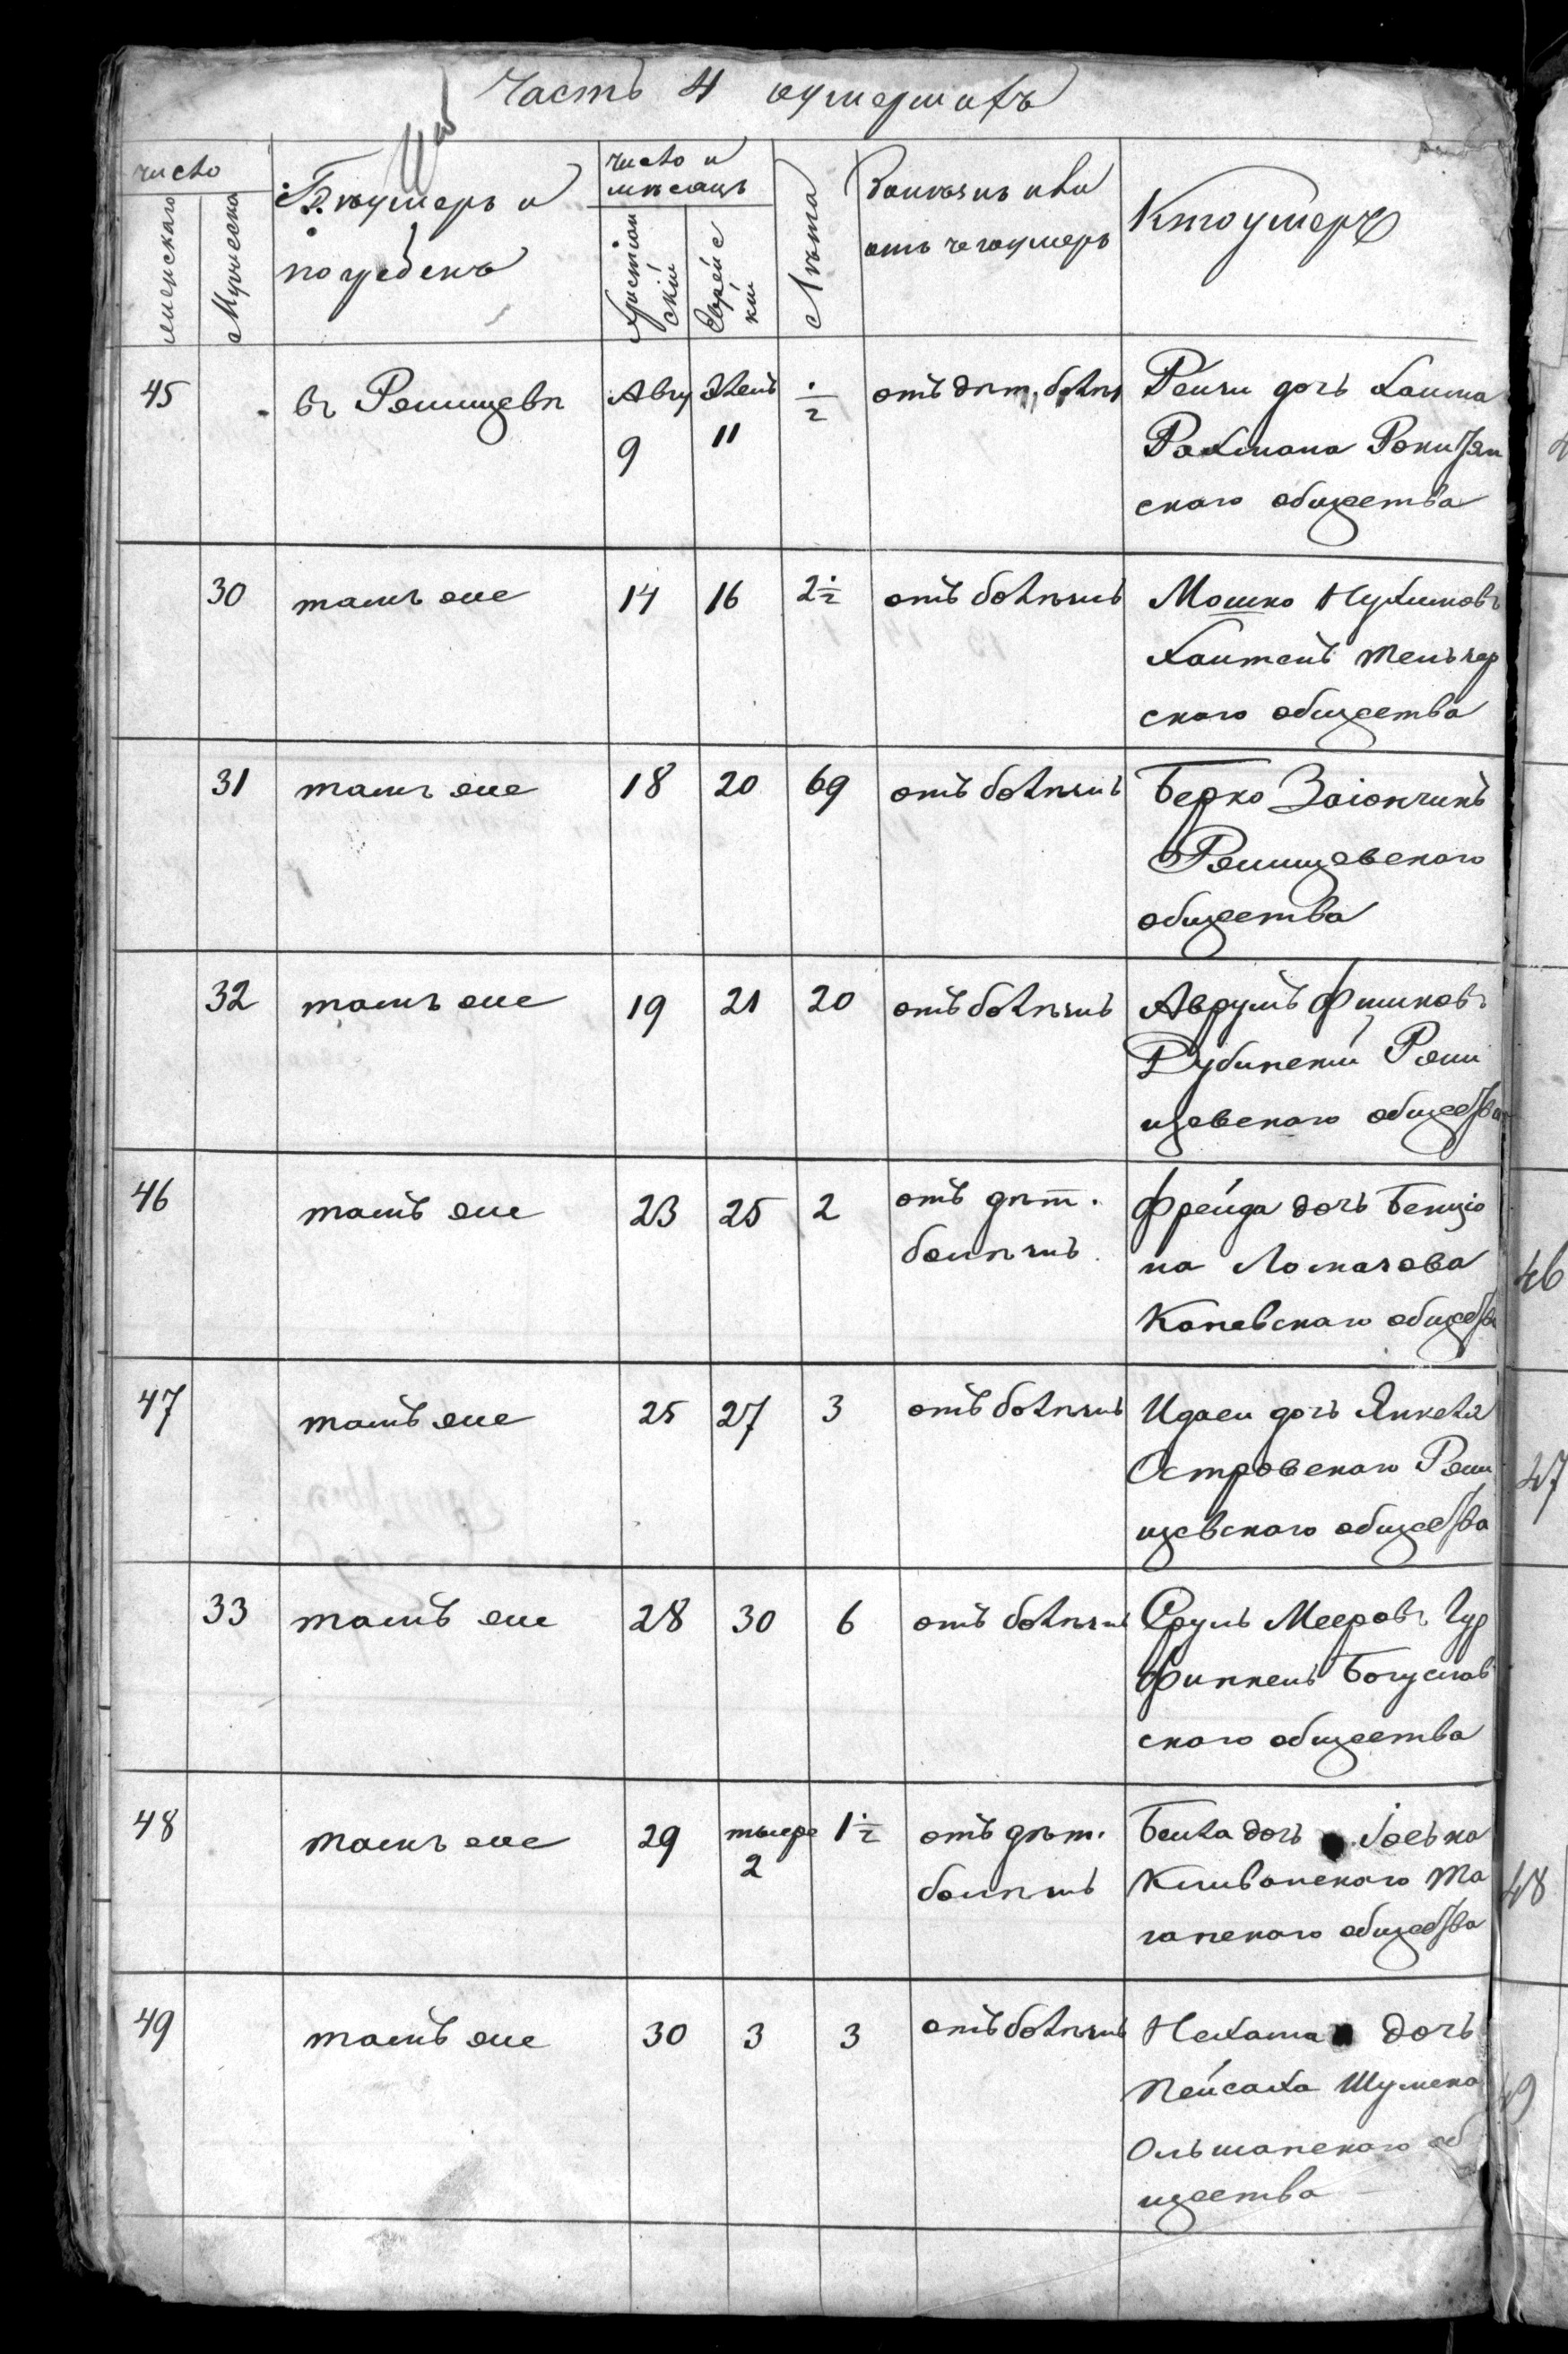 Часть 4 оумершихъ
число
женскаго
Мужеска
Гдѣ умеръ и
погребенъ
число и
мѣсяцъ
Христіан
скій
Еврейс
кій
Лѣта
Болѣзнь или
отъ чего умеръ
Кто умеръ
45 въ Ржищевѣ Авгу Элепъ 1/2 отъ дѣт. болѣз
9 11
Рейзи дочь Хаима
Рахмана Рокитян
скаго общества
30 тамъ же 14 16 2 1/2 отъ болѣзнь Мошко Нухимовъ
Хаитенъ
скаго общества
31 тамъ же 18 20 69 отъ болѣзнь Берко Заіончикъ
Ржищевскаго
общества
32 тамъ же 19 21 20 отъ болѣзнь Аврумъ Фишковъ
Дубинскій Ржи
щевскаго общества
46 тамъ же 23 25 2 отъ дѣт.
болѣзнь
Фрейда дочь Бенціо
на Ломазова
Каневскаго общества
47 тамъ же 25 27 3 отъ болѣзнь дочь Янкеля
Островскаго Ржи
щевскаго общества
33 тамъ же 28 30 6 отъ болѣзнь Сруль Мееровъ Гур
финкель Богуслав
скаго общества
48 тамъ же 29 2 1 1/2 отъ дѣт.
болѣзнь
Бейла дочь Іоська
Та
ганскаго общества
49 тамъ же 30 3 3 отъ болѣзнь Нехама дочь
Пейсаха Шумска
Ольшанскаго об
щества
46
47
48
49